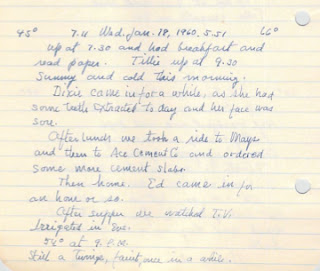 45° 7.11 Wed. Jan. 18, 1960. 5.51 66°
up at 7.30 and had breakfast and
read paper. Tillie up at 9.30
Sunny and cold this morning.
Dixie came in for a while, as she had
some teeth extracted to day and her face was
sore.
After lunch we took a ride to Mays
and then to Ace Cement Co and ordered
some more cement slabs.
Then home. Ed came in for
an hour or so.
After supper we watched T.V.
Irrigated in eve.
56° at 9. P.M.
Still a Twinge, faint, once in a while.